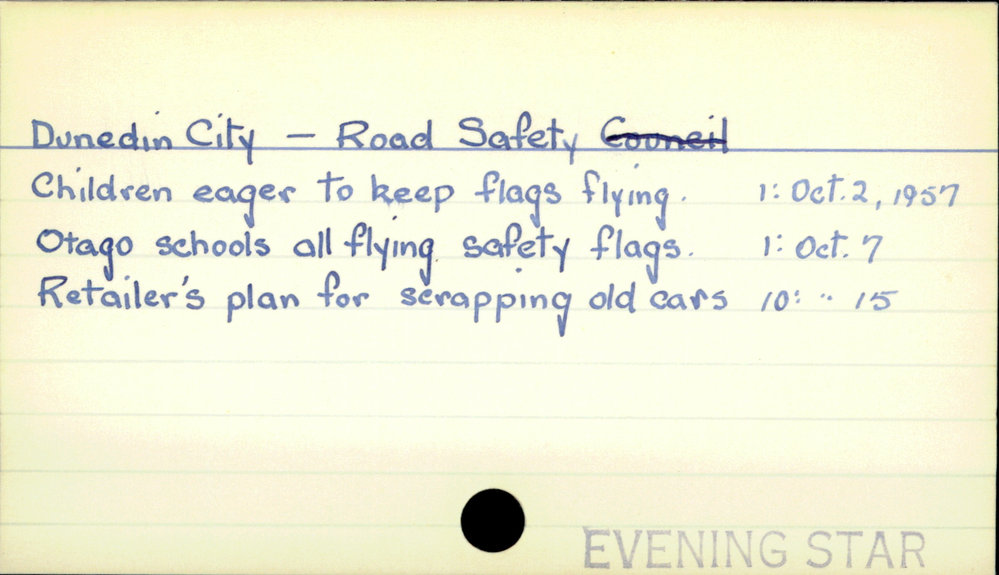 Dunedin City — Road Safety Council
Children eager to keep flags flying. 1: Oct. 2, 1957
Otago schools all flying safety flags. 1: Oct. 7
Retailer's plan for scrapping old cars 10: " 15
EVENING STAR